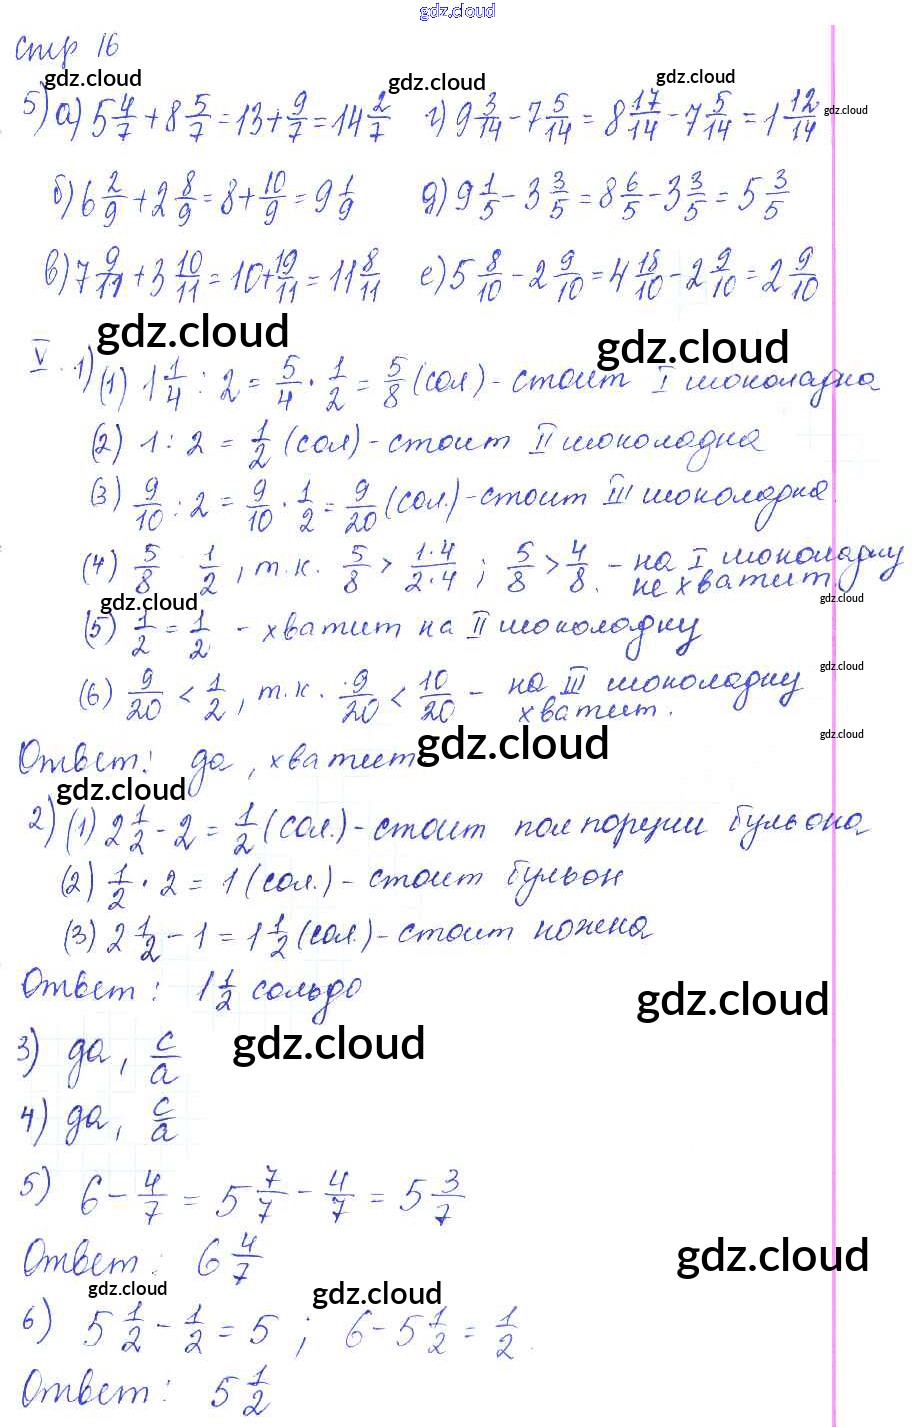 gdz.cloud
стр 16
gdz.cloud gdz.cloud gdz.cloud
5) а) 5 4/7 + 8 5/7 = 13 + 9/7 = 14 2/7 г) 9 3/14 - 7 5/14 = 8 17/14 - 7 5/14 = 1 12/14 gdz.cloud
б) 6 2/9 + 2 8/9 = 8 + 10/9 = 9 1/9 д) 9 1/5 - 3 3/5 = 8 6/5 - 3 3/5 = 5 3/5
в) 7 9/11 + 3 10/11 = 10 + 19/11 = 11 8/11 е) 5 8/10 - 2 9/10 = 4 18/10 - 2 9/10 = 2 9/10
gdz.cloud gdz.cloud
V. 1) (1) 1 1/4 : 2 = 5/4 · 1/2 = 5/8 (сол) - стоит I шоколадка
(2) 1 : 2 = 1/2 (сол) - стоит II шоколадка
(3) 9/10 : 2 = 9/10 · 1/2 = 9/20 (сол.) - стоит III шоколадка.
(4) 5/8 1/2, т.к. 5/8 > 1·4/2·4 ; 5/8 > 4/8. - на I шоколадку
не хватит
gdz.cloud gdz.cloud
(5) 1/2 = 1/2 - хватит на II шоколадку
gdz.cloud
(6) 9/20 < 1/2, т.к. 9/20 < 10/20 - на III шоколадку
хватит.
gdz.cloud gdz.cloud
Ответ: да, хватит
gdz.cloud
2) (1) 2 1/2 - 2 = 1/2 (сол.) - стоит пол порции бульона
(2) 1/2 · 2 = 1 (сол.) - стоит бульон
(3) 2 1/2 - 1 = 1 1/2 (сол.) - стоит ножка
Ответ: 1 1/2 сольдо
gdz.cloud
gdz.cloud
3) да, c/a
4) да, c/a
5) 6 - 4/7 = 5 7/7 - 4/7 = 5 3/7
Ответ: 6 4/7
gdz.cloud
gdz.cloud gdz.cloud
6) 5 1/2 - 1/2 = 5 ; 6 - 5 1/2 = 1/2.
Ответ: 5 1/2